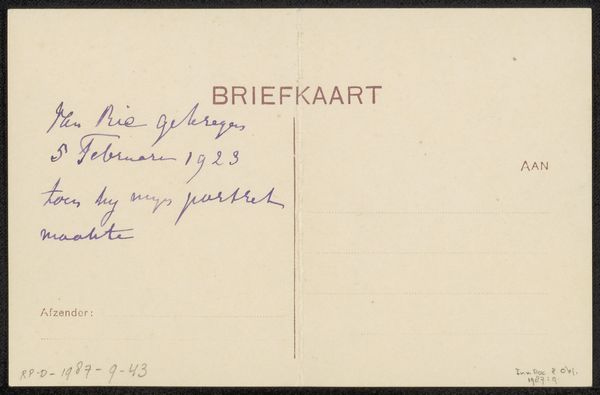 BRIEFKAART
Van Rie gekregen
5 Februari 1923
toen hy myn portret
maakte
AAN
Afzender:
RP-D-1987-9-43
1987:9